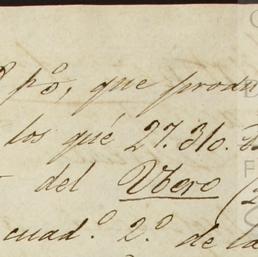 p.º, que produ
los qué 27.310.
del Vbero
cuad.º 2.º de la